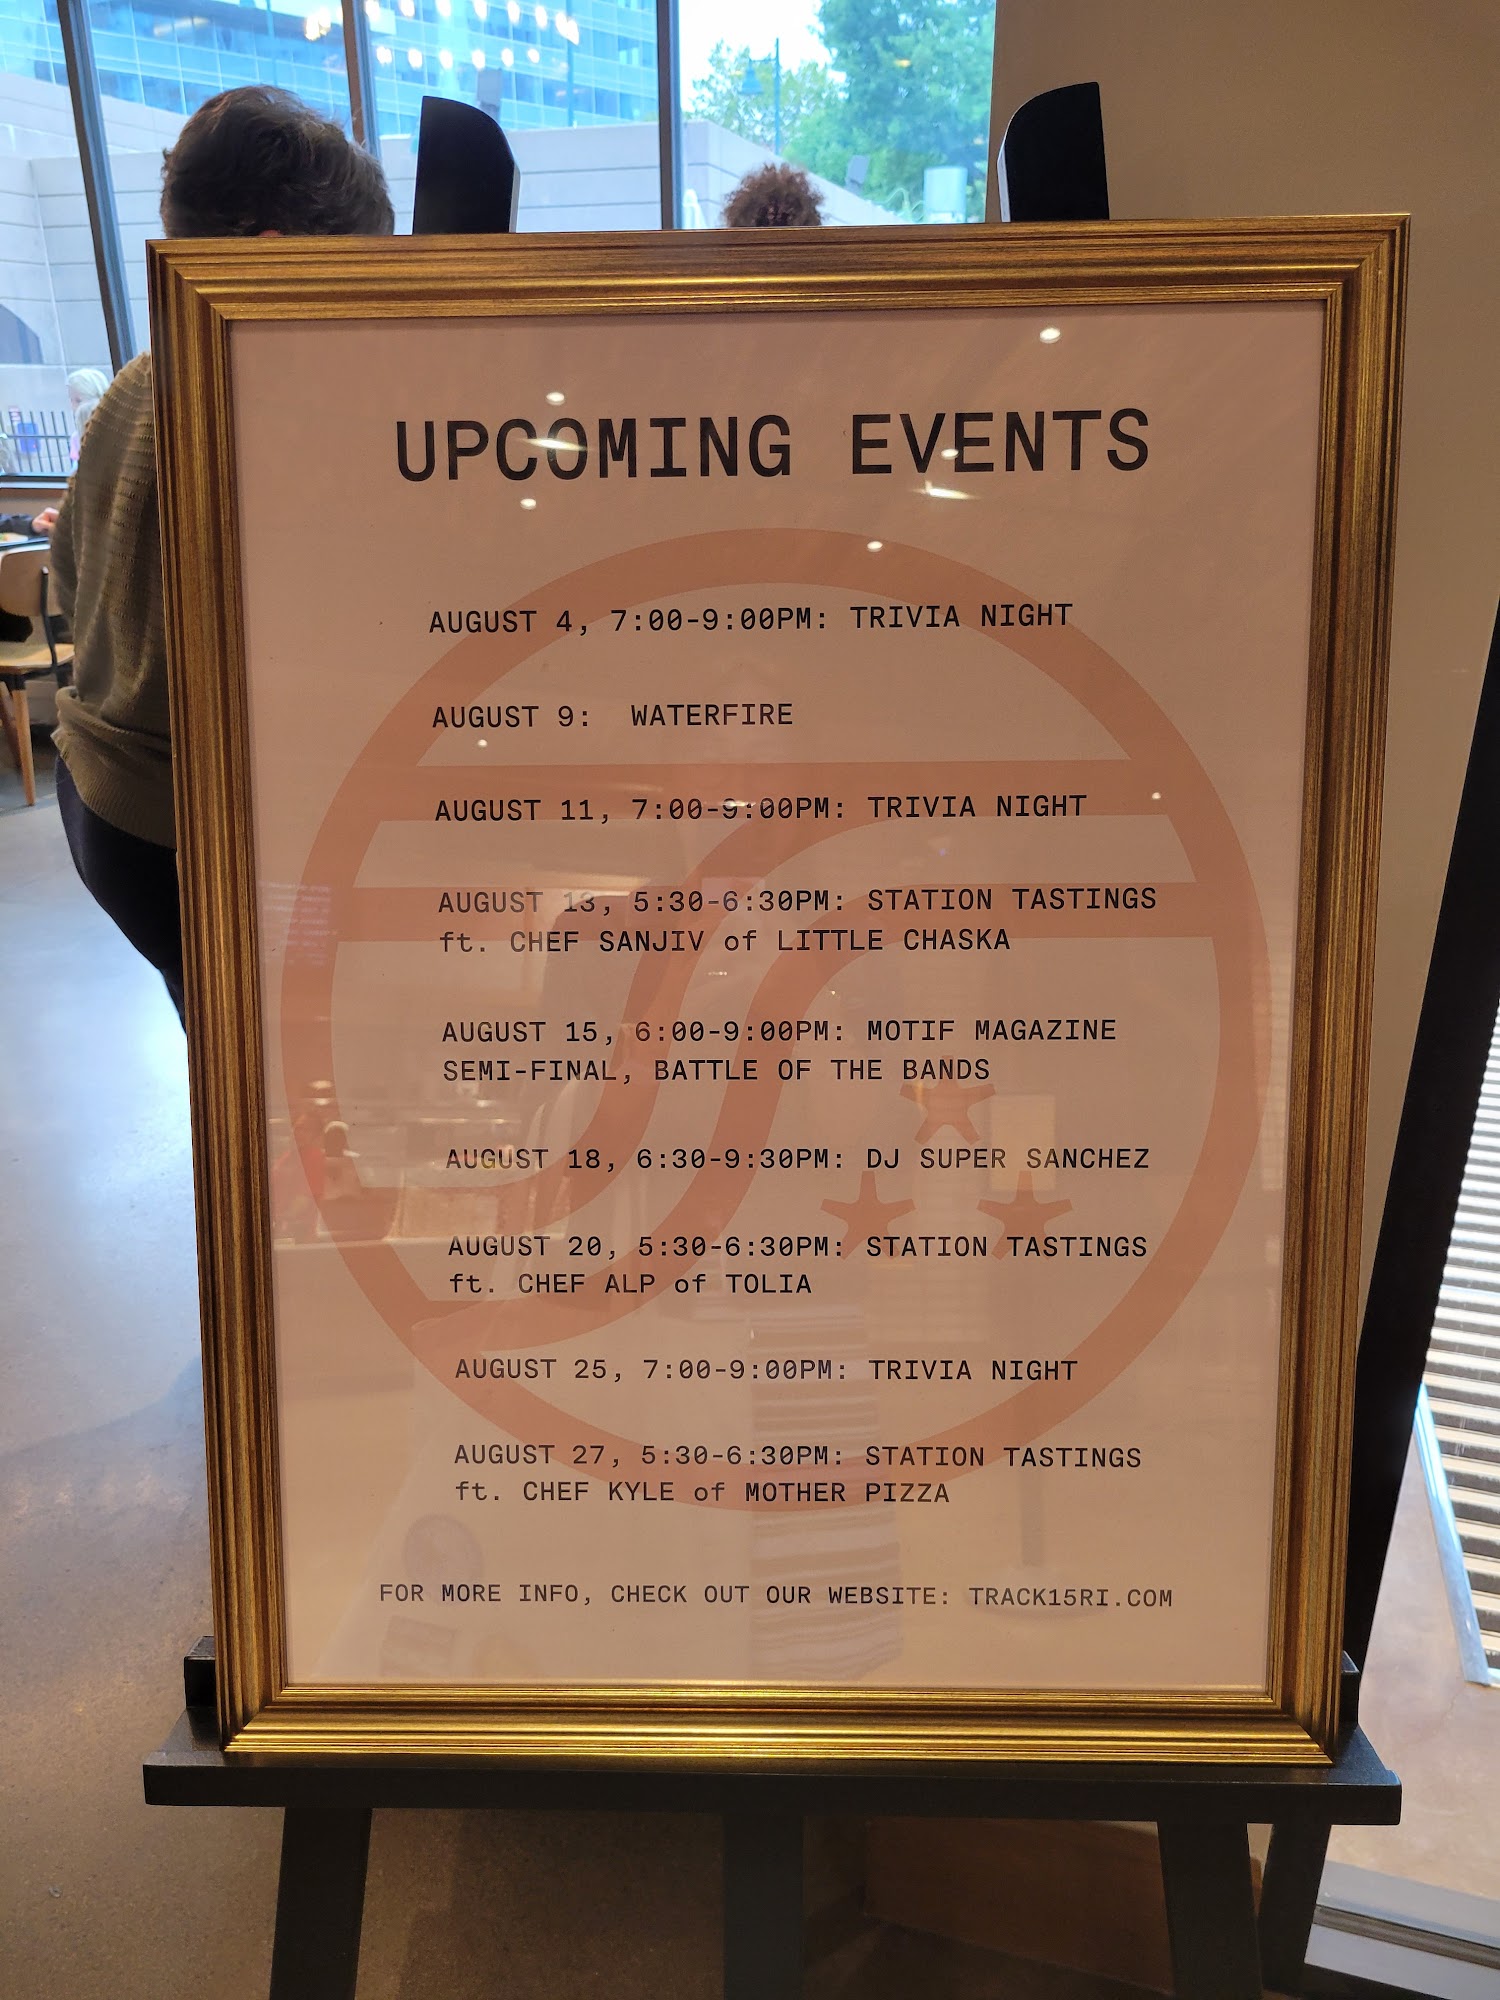 UPCOMING EVENTS
AUGUST 4, 7:00-9:00PM: TRIVIA NIGHT
AUGUST 9: WATERFIRE
AUGUST 11, 7:00-9:00PM: TRIVIA NIGHT
AUGUST 13, 5:30-6:30PM: STATION TASTINGS
ft. CHEF SANJIV of LITTLE CHASKA
AUGUST 15, 6:00-9:00PM: MOTIF MAGAZINE
SEMI-FINAL, BATTLE OF THE BANDS
AUGUST 18, 6:30-9:30PM: DJ SUPER SANCHEZ
AUGUST 20, 5:30-6:30PM: STATION TASTINGS
ft. CHEF ALP of TOLIA
AUGUST 25, 7:00-9:00PM: TRIVIA NIGHT
AUGUST 27, 5:30-6:30PM: STATION TASTINGS
ft. CHEF KYLE of MOTHER PIZZA
FOR MORE INFO, CHECK OUT OUR WEBSITE: TRACK15RI.COM